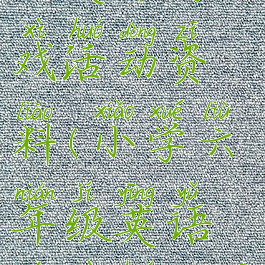 xì huó dòng zī
戏活动资
liào xiǎo xué liù
料(小学六
nián jí yīng yǔ
年级英语